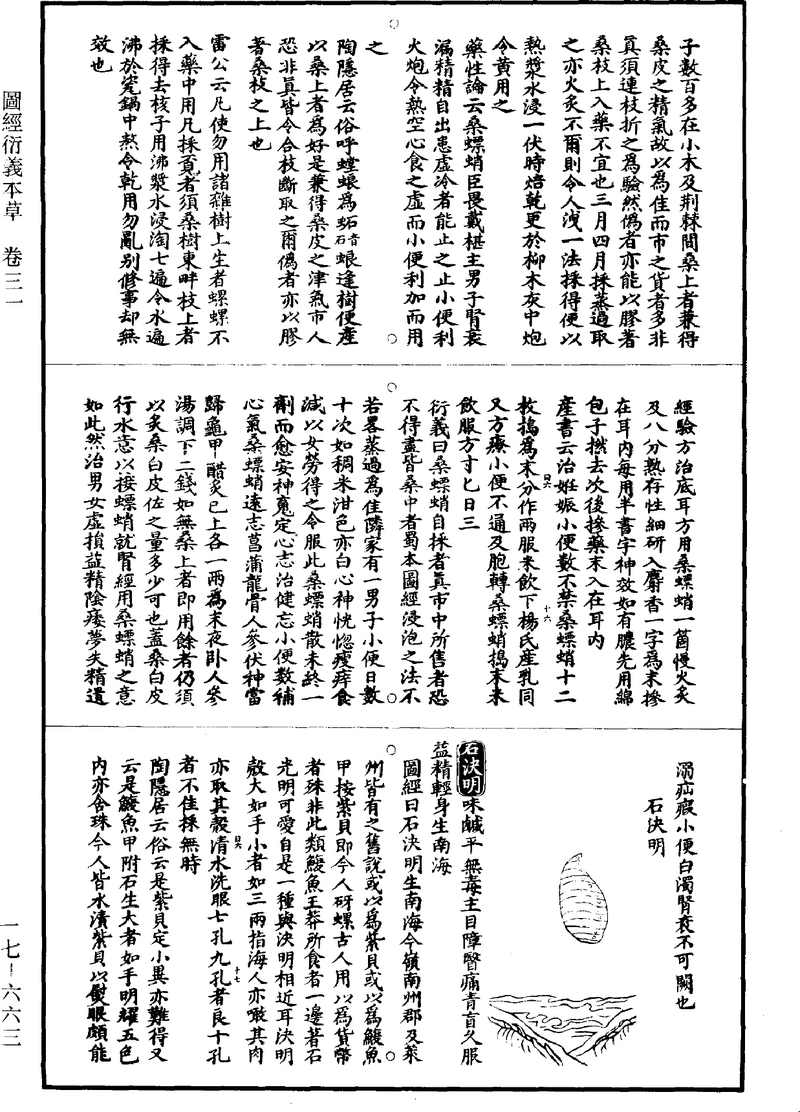 圖經衍義本草　卷三一
一七－六六三
子數百多在小木及荆棘間桑上者兼得
桑皮之精氣故以為佳而市之貨者多非
真須連枝折之為驗然偽者亦能以膠著
桑枝上入藥不宜也三月四月採蒸過取
之亦火炙不爾則令人洩一法採得便以
熱漿水浸一伏時焙乾更於柳木灰中炮
令黄用之
藥性論云桑螵蛸臣畏戴椹主男子腎衰
漏精精自出患虛冷者能止之止小便利
火炮令熱空心食之虛而小便利加而用
之
陶隱居云俗呼螳蜋為䖴音石蜋逢樹便產
以桑上者為好是兼得桑皮之津氣市人
恐非真皆令合枝斷取之爾偽者亦以膠
著桑枝之上也
雷公云凡使勿用諸雜樹上生者螺螺不
入藥中用凡採覓者須桑樹東畔枝上者
採得去核子用沸漿水浸淘七遍令水遍
沸於瓷鍋中熬令乾用勿亂别修事却無
效也
經驗方治底耳方用桑螵蛸一箇慢火炙
及八分熟存性細研入麝香一字為末摻
在耳内每用半書字神效如有膿先用綿
包子撚去次後摻藥末入在耳内
產書云治妊娠小便數不禁桑螵蛸十二
枚搗為末分作兩服米飲下楊氏產乳同
又方療小便不通及胞轉桑螵蛸搗末米
飲服方寸匕日三
衍義曰桑螵蛸自採者真市中所售者恐
不得盡皆桑中者蜀本圖經浸泡之法不
若畧蒸過為佳隣家有一男子小便日數
十次如稠米泔色亦白心神恍惚瘦瘁食
減以女勞得之令服此桑螵蛸散未終一
劑而愈安神魂定心志治健忘小便數補
心氣桑螵蛸遠志菖蒲龍骨人參伏神當
歸龜甲醋炙已上各一兩為末夜卧人參
湯調下二錢如無桑上者即用餘者仍須
以炙桑白皮佐之量多少可也蓋桑白皮
行水意以接螵蛸就腎經用桑螵蛸之意
如此然治男女虛損益精陰痿夢失精遺
溺疝瘕小便白濁腎衰不可闕也
石決明
石決明味鹹平無毒主目障瞖痛青盲久服
益精輕身生南海
圖經曰石決明生南海今嶺南州郡及萊
州皆有之舊說或以為紫貝或以為鰒魚
甲按紫貝即今人砑螺古人用以為貨幣
者殊非此類鰒魚王莽所食者一邊著石
光明可愛自是一種與決明相近耳決明
殼大如手小者如三兩指海人亦噉其肉
亦取其殼清水洗眼七孔九孔者良十孔
者不佳採無時
陶隱居云俗云是紫貝定小異亦難得又
云是鰒魚甲附石生大者如手明耀五色
内亦含珠今人皆水漬紫貝以熨眼頗能